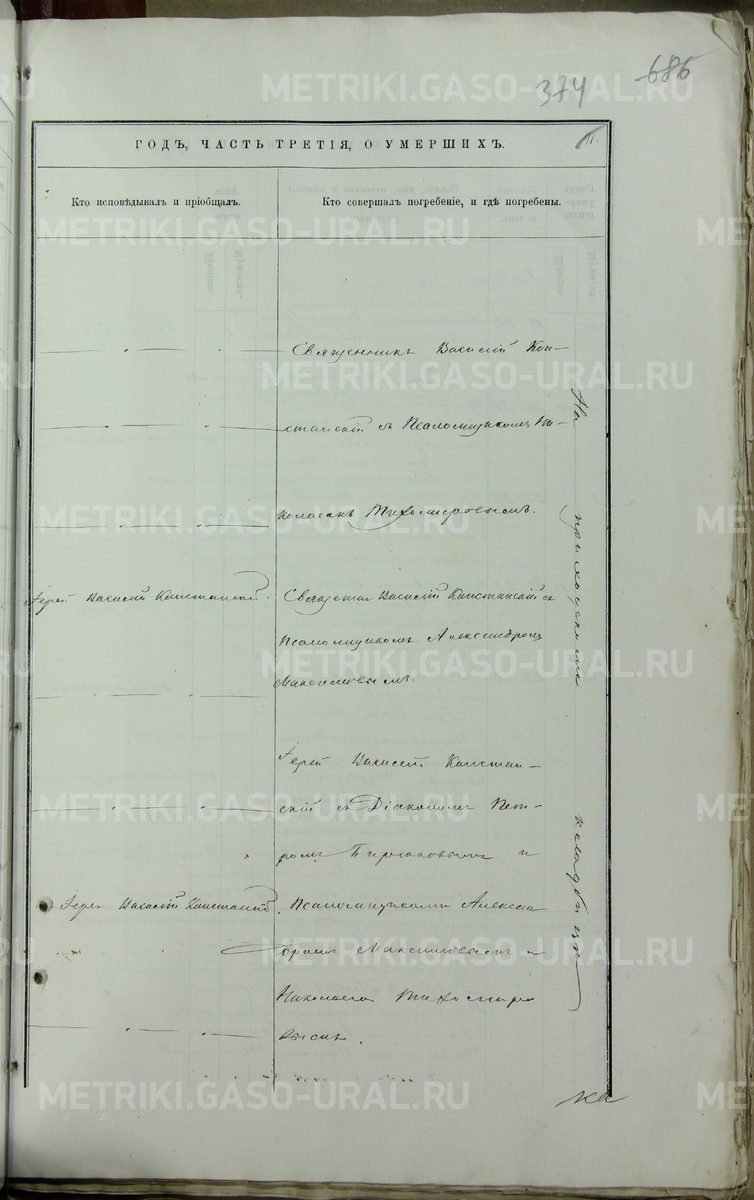 686
374
ГОДЪ, ЧАСТЬ ТРЕТІЯ, О УМЕРШИХЪ.
Кто исповѣдывалъ и пріобщалъ.
Кто совершалъ погребеніе, и гдѣ погребены.
Священникъ Василій Кон-
станскій съ Псаломщикомъ Ни-
колаемъ Тихомировымъ.
Іерей Василій Констанскій.
Священник Василій Констанскій съ
Псаломщикомъ Александромъ
Максимовымъ.
Іерей Василій Констан-
скій съ Діакономъ Пет-
ромъ и
Іерей Василій Констанскій.
Псаломщиками Алексан
дромъ Максимовымъ и
Николаемъ Тихомиро
вымъ.
На приходскомъ кладбищѣ
METRIKI.GASO-URAL.RU